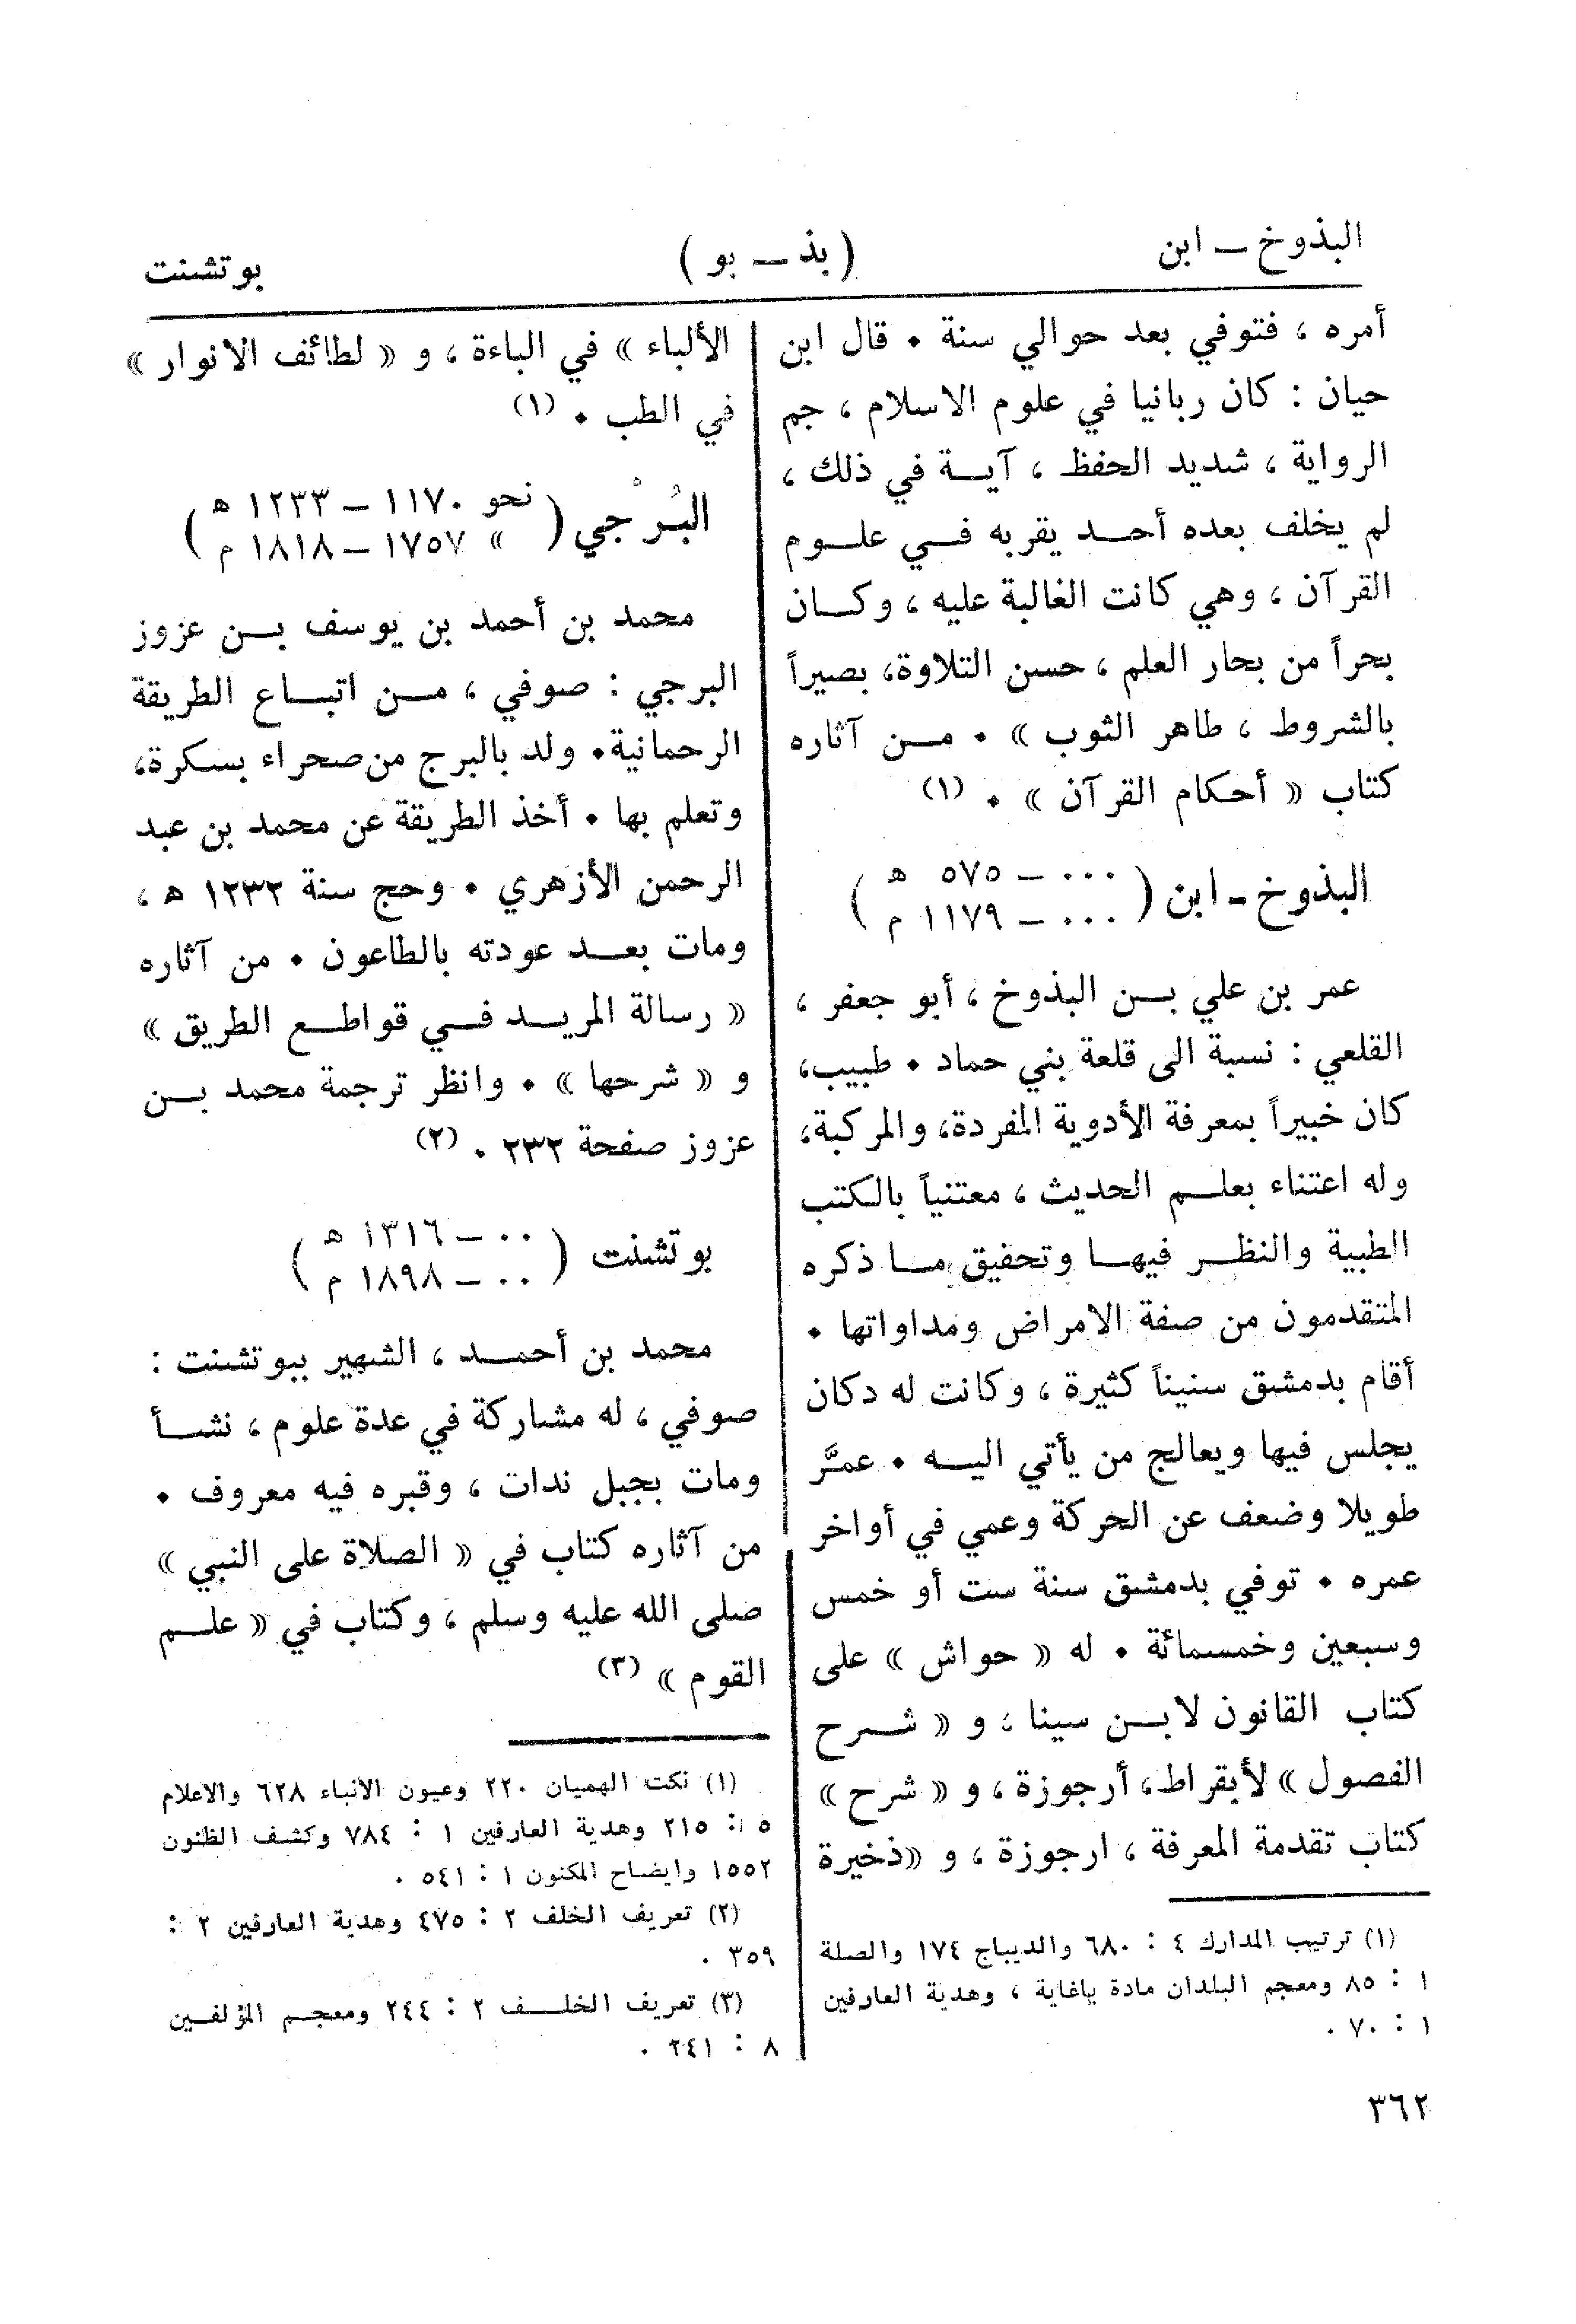 البذوخ – ابن
( بذ – بو )
بوتشنت
أمره ، فتوفي بعد حوالي سنة . قال ابن
حيان : كان ربانيا في علوم الاسلام ، جم
الرواية ، شديد الحفظ ، آيــة في ذلك ،
لم يخلف بعده أحــد يقربه فــي علــوم
القرآن ، وهي كانت الغالبة عليه ، وكــان
بحراً من بحار العلم ، حسن التلاوة، بصيراً
بالشروط ، طاهر الثوب » . مــن آثاره
كتاب « أحكام القرآن » . (١)
البذوخ - ابن ( ٠٠٠ – ٥٧٥ هـ
٠٠٠ – ١١٧٩ م )
عمر بن علي بــن البذوخ ، أبو جعفر ،
القلعي : نسبة الى قلعة بني حماد . طبيب،
كان خبيراً بمعرفة الأدوية المفردة، والمركبة،
وله اعتناء بعلــم الحديث ، معتنياً بالكتب
الطبية والنظــر فيهــا وتحقيق مــا ذكره
المتقدمون من صفة الامراض ومداواتها .
أقام بدمشق سنيناً كثيرة ، وكانت له دكان
يجلس فيها ويعالج من يأتي اليــه . عمَّر
طويلا وضعف عن الحركة وعمي في أواخر
عمره . توفي بدمشق سنة ست أو خمس
وسبعين وخمسمائة . له « حواش » على
كتاب القانون لابــن سينا ، و « شــرح
الفصول » لأبقراط، أرجوزة ، و « شرح »
كتاب تقدمة المعرفة ، ارجوزة ، و «ذخيرة
(١) ترتيب المدارك ٤ : ٦٨٠ والديباج ١٧٤ والصلة
١ : ٨٥ ومعجم البلدان مادة باغاية ، وهدية العارفين
١ : ٧٠ .
الألباء » في الباءة ، و « لطائف الانوار »
في الطب . (١)
البُرْجي ( نحو ١١٧٠ – ١٢٣٣ هـ
» ١٧٥٧ – ١٨١٨ م )
محمد بن أحمد بن يوسف بــن عزوز
البرجي : صوفي ، مــن اتبــاع الطريقة
الرحمانية. ولد بالبرج من صحراء بسكرة،
وتعلم بها . أخذ الطريقة عن محمد بن عبد
الرحمن الأزهري . وحج سنة ١٢٣٢ هـ ،
ومات بعــد عودته بالطاعون . من آثاره
« رسالة المريــد فــي قواطــع الطريق »
و « شرحها » . وانظر ترجمة محمد بــن
عزوز صفحة ٢٣٢ . (٢)
بوتشنت ( ٠٠ – ١٣١٦ هـ
٠٠ – ١٨٩٨ م )
محمد بن أحمــد ، الشهير ببوتشنت :
صوفي ، له مشاركة في عدة علوم ، نشــأ
ومات بجبل ندات ، وقبره فيه معروف .
من آثاره كتاب في « الصلاة على النبي »
صلى الله عليه وسلم ، وكتاب في « علــم
القوم » (٣)
(١) نكت الهميان ٢٢٠ وعيون الانباء ٦٢٨ والاعلام
٥ : ٢١٥ وهدية العارفين ١ : ٧٨٤ وكشف الظنون
١٥٥٢ وايضاح المكنون ١ : ٥٤١ .
(٢) تعريف الخلف ٢ : ٤٧٥ وهدية العارفين ٢ :
٣٥٩ .
(٣) تعريف الخلــف ٢ : ٢٤٤ ومعجــم المؤلفــين
٨ : ٢٤١ .
٣٦٢